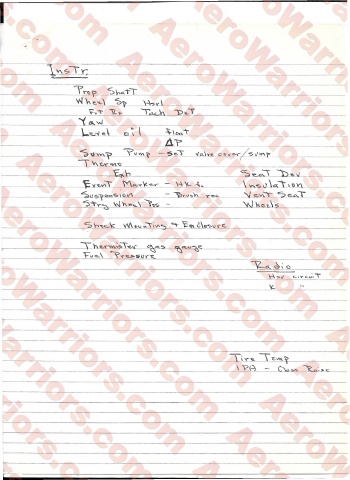 Instr.
Prop Shaft
Wheel Sp Horl
Ft Rr Tach Det
Yaw
Level oil float
ΔP
Sump Pump - set valve cover/sump
Thermo
Exh Seat Dev
Event Marker - Insulation
Suspension - Brush rec Vent Seat
Strg Wheel Pos - Wheels
Shock Mounting & Enclosure
Thermister gas gauge
Fuel Pressure
Radio
circuit
K "
Tire Temp
1PH -
AeroWarriors.com